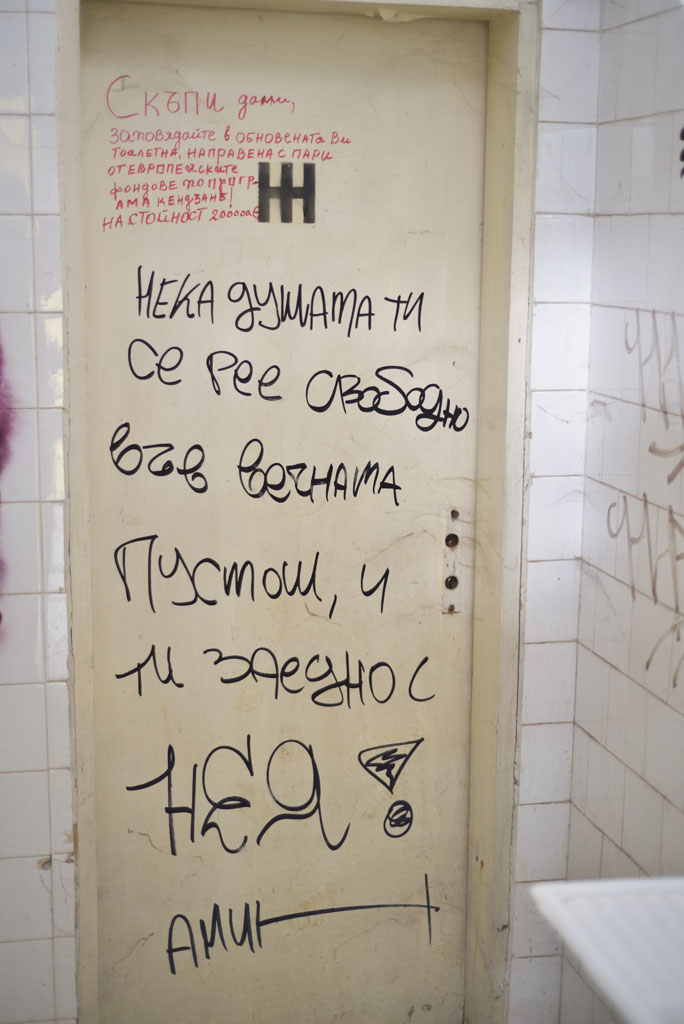 Скъпи дами,
заповядайте в обновената Ви
тоалетна, направена с пари
от европейските
фондове по прогр-
ама Кендзане!
на стойност 200000€
Ж
НЕКА ДУШАТА ТИ
СЕ РЕЕ СВОБОДНО
ВЪВ ВЕЧНАТА
ПУСТОШ, И
ТИ ЗАЕДНО С
НЕЯ!
АМИН